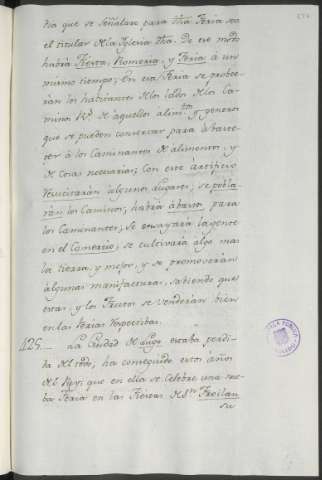 dia que se señalare para dha Feria sea
el titular de la Iglesia dha. De ese modo
habrá Fiesta, Romeria, y Feria á un
mismo tiempo; En esta Feria se provee-
rán los habitantes de los lados de los Ca-
minos Rs. de aquellos alimtos y generos
que se pueden conservar para abaste-
cer á los Caminantes de alimentos, y
de cosas necesarias; Con este artificio
resucitarán algunos Lugares, se pobla-
rán los Caminos, habrá abasto para
los Caminantes, se ensayará la gente
en el Comercio, se cultivará algo mas
la tierra, y mejor, y se promoverán
algunas manufacturas, sabiendo que
estas, y los Frutos se venderán bien
en las Ferias respectivas.
425. La Ciudad de Lugo estaba perdi-
da del todo; ha conseguido estos años
del Rey que en ella se celebre una nue-
ba Feria en las Fiestas de Sn. Froilan
su